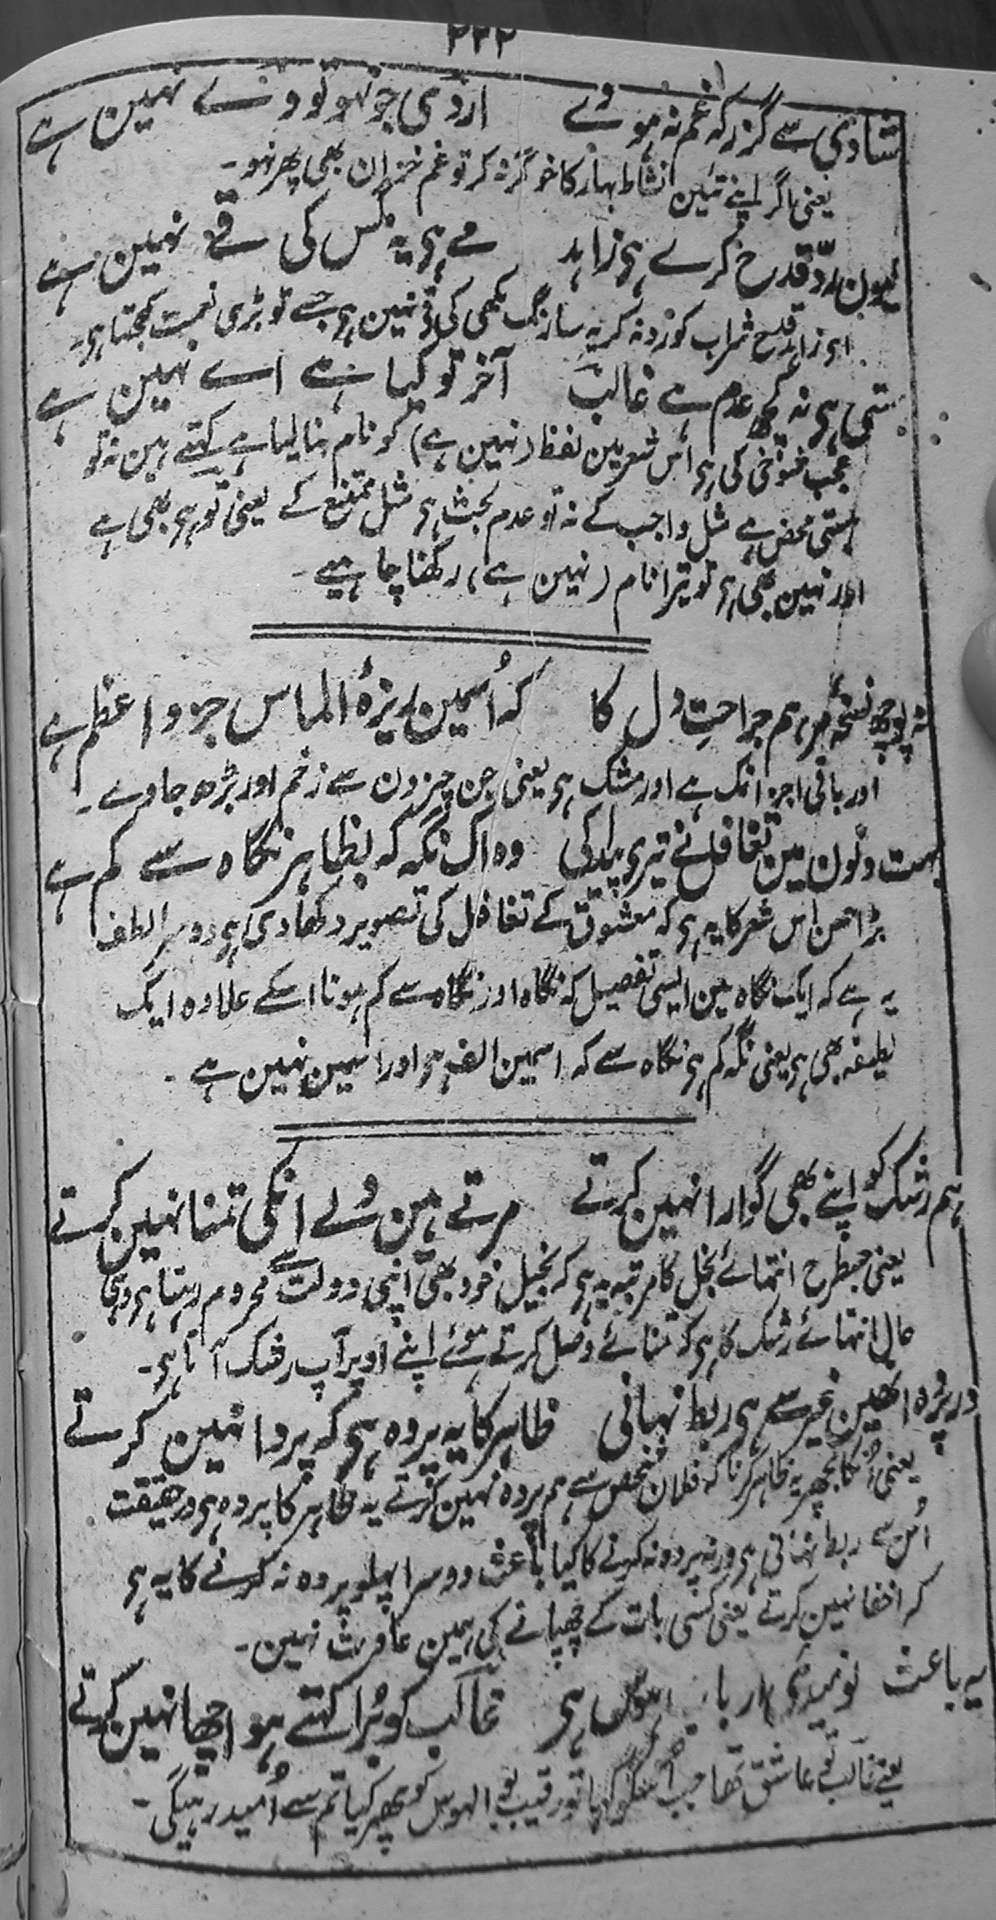 ۲۲۲
شادی سے گزر کہ غم نہ ہووے اردی جو نہو تو دے نہین ہے
یعنی اگر اپنے تئین نشاط بہار کا خوگر نہ کر تو غم خزان بھی پھر نہو۔
کیون ردّ قدح کرے ہی زاہد مے ہی یہ مگس کی قے نہین ہے
ای زاہد قدح شراب کو رد نہ کر یہ سارنگ مکھی کی قے نہین ہی جسے تو بڑی نعمت سمجھتا ہی۔
ہستی ہی نہ کچھ عدم ہے غالب آخر تو کیا ہے اے نہین ہے
عجب شوخی کی ہی اس شعر مین لفظ (نہین ہے) کو نام بنا لیا ہے کہتے ہین نہ تو
ہستی محض ہے مثل واجب کے نہ تو عدم بحث ہی مثل ممتنع کے یعنی تو ہی بھی ہے
اور نہین بھی ہی تو تیرا نام (نہین ہے) رکھنا چاہیے۔
نہ پوچھ نسخہ مرہم جراحتِ دل کا کہ اُسمین ریزۂ الماس جزو اعظم ہے
اور باقی اجزا نمک ہے اور مشک ہی یعنی جن چیزون سے زخم اور بڑھ جاوے۔
بہت دنون مین تغافل نے تیرے پیدا کی وہ اک نگہ کہ بظاہر نگاہ سے کم ہے
بڑا حسن اس شعر کا یہ ہی کہ معشوق کے تغافل کی تصویر دکھا دی ہی دوسرا لطف
یہ ہے کہ ایک نگاہ مین ایسی تفصیل کہ نگاہ اور نگاہ سے کم ہونا اسکے علاوہ ایک
لطیفہ بھی ہی یعنی نگہ کم ہی نگاہ سے کہ اسمین الف ہی اور اسمین نہین ہے۔
ہم رشک کو اپنے بھی گوارا نہین کرتے مرتے ہین ولے انکی تمنا نہین کرتے
یعنی جسطرح انتہائے بخل کا مرتبہ یہ ہی کہ بخیل خود بھی اپنی دولت سے محروم رہتا ہی وہی
حال انتہائے رشک کا ہی کہ تمنائے وصل کرتے ہوئے اپنے اوپر آپ رشک آتا ہی۔
در پردہ اُنھین غیر سے ہی ربط نہانی ظاہر کا یہ پردہ ہی کہ پردا نہین کرتے
یعنی اُنکا مجھ پر یہ ظاہر کرنا کہ فلان شخص سے ہم پردہ نہین کرتے یہ ظاہر کا پردہ ہی درحقیقت
اُس سے ربط نہانی ہی ورنہ پردہ نہ کرنے کا کیا باعث دوسرا پہلو پردہ نہ کرنے کا یہ ہی
کہ اخفا نہین کرتے یعنی کسی بات کے چھپانے کی ہمین عادت نہین۔
یہ باعث نومیدی ارباب ہوس ہی غالب کو بُرا کہتے ہو اچھا نہین کرتے
یعنے غالب تو عاشق تھا جب اُسکو بُرا کہا تو رقیب بو الہوس کو پھر کیا تم سے اُمید رہیگی۔